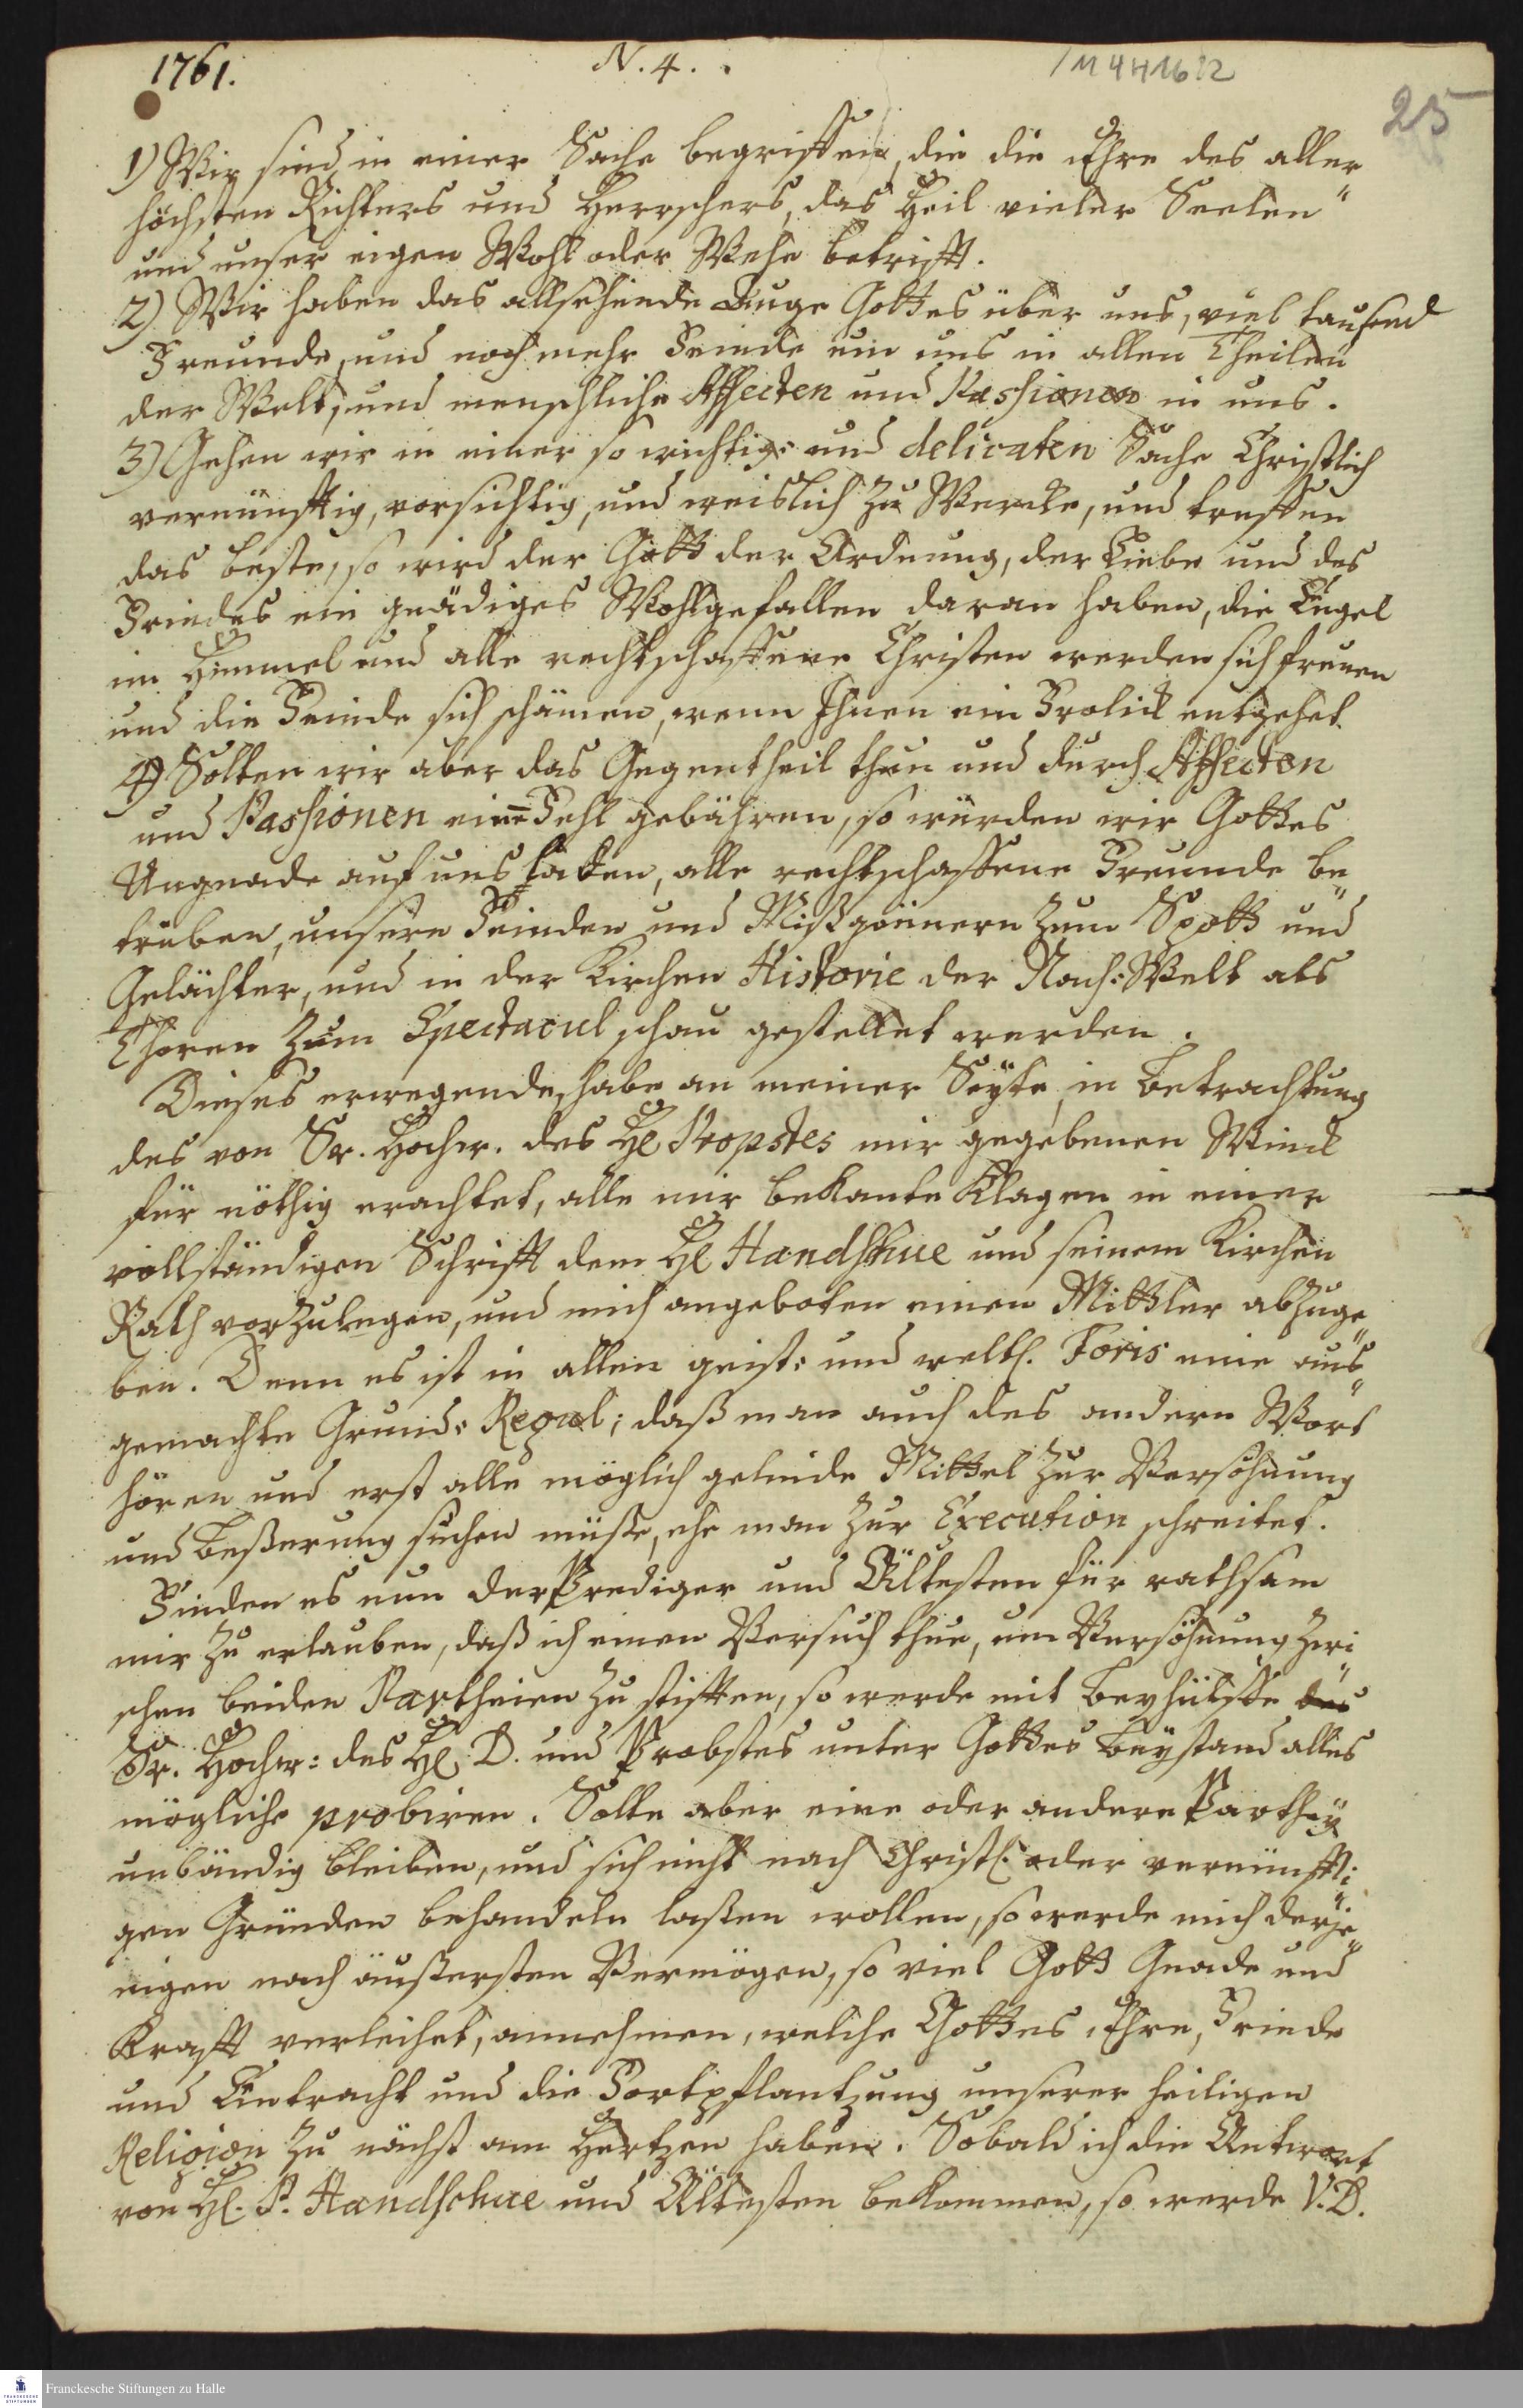 1761.
N. 4.
/11 4 H 16 : 2
25
1) Wir sind in einer Sache begriffen, die die Ehre des aller
höchsten Richters und Herrschers, das Heil vieler Seelen
und unser eigen Wohl oder Wehe betrifft.
2) Wir haben das allsehende Auge Gottes über uns, viel tausend
Freunde, und noch mehr Feinde um uns in allen Theilen
der Welt, und menschliche Affecten und Passionen in uns.
3) Gehen wir in einer so wichtig: und delicaten Sache Christlich
vernünfftig, vorsichtig, und weislich zu Wercke, und treffen
das beste, so wird der Gott der Ordnung, der Liebe und des
Friedes ein gnädiges Wohlgefallen daran haben, die Engel
im Himmel und alle rechtschaffene Christen werden sich freuen
und die Feinde sich schämen, wenn Ihnen ein Frolick entgehet.
4) Solten wir aber das Gegentheil thun und durch Affecten
und Passionen eine Fehl gebähren, so würden wir Gottes
Ungnade auf uns laden, alle rechtschaffene Freunde be„
trüben, unsern Feinden und Mißgönnern zum Spott und
Gelächter, und in der Kirchen Historie der Nach: Welt als
Thoren zum Spectacul schau gestellet werden.
Dieses erwegende, habe an meiner Seyte, in Betrachtung
des von Sr. Hochw. des H. Propstes mir gegebenen Winck
für nöthig erachtet, alle mir bekante Klagen in einer
vollständigen Schrifft dem H. Handschue und seinem Kirchen
Rath vorzulegen, und mich angeboten einen Mittler abzuge„
ben. Denn es ist in allen geist: und weltl. Foris eine aus„
gemachte Grund: Regul; daß man auch des andern Wort
hören und erst alle möglich gelinde Mittel zur Versöhnung
und Beßerung suchen müße, ehe man zur Execution schreitet.
Finden es nun der Prediger und Ältesten für rathsam
mir zu erlauben, daß ich einen Versuch thue, um Versöhnung zwi„
schen beiden Partheien zu stifften, so werde mit Beyhülffe des
Sr. Hochw: des H. D. und Probstes unter Gottes Beystand alles
mögliche probiren. Solte aber eine oder andere Parthey
unbändig bleiben, und sich nicht nach Christl. oder vernünffti:
gen Gründen behandeln laßen wollen, so werde mich derje„
nigen nach äußersten Vermögen, so viel Gott Gnade und
Krafft verleihet, annehmen, welche Gottes Ehre, Friede
und Eintracht und die Fortpflantzung unserer heiligen
Religion zu nächst am Hertzen haben. Sobald ich die Antwort
von H. P. Handschue und Ältesten bekommen, so werde V. D.
Franckesche Stiftungen zu Halle